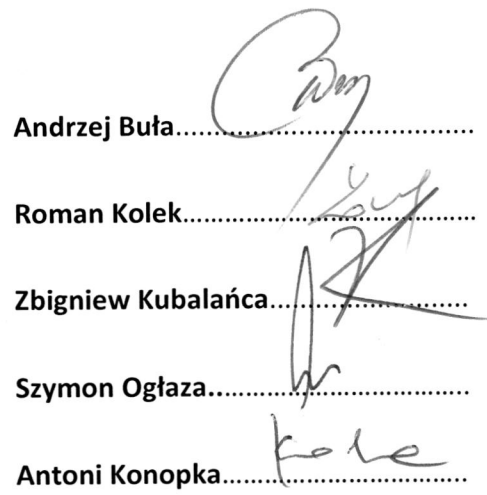 Andrzej Buła......................................
Roman Kolek......................................
Zbigniew Kubalańca.........................
Szymon Ogłaza..................................
Antoni Konopka................................